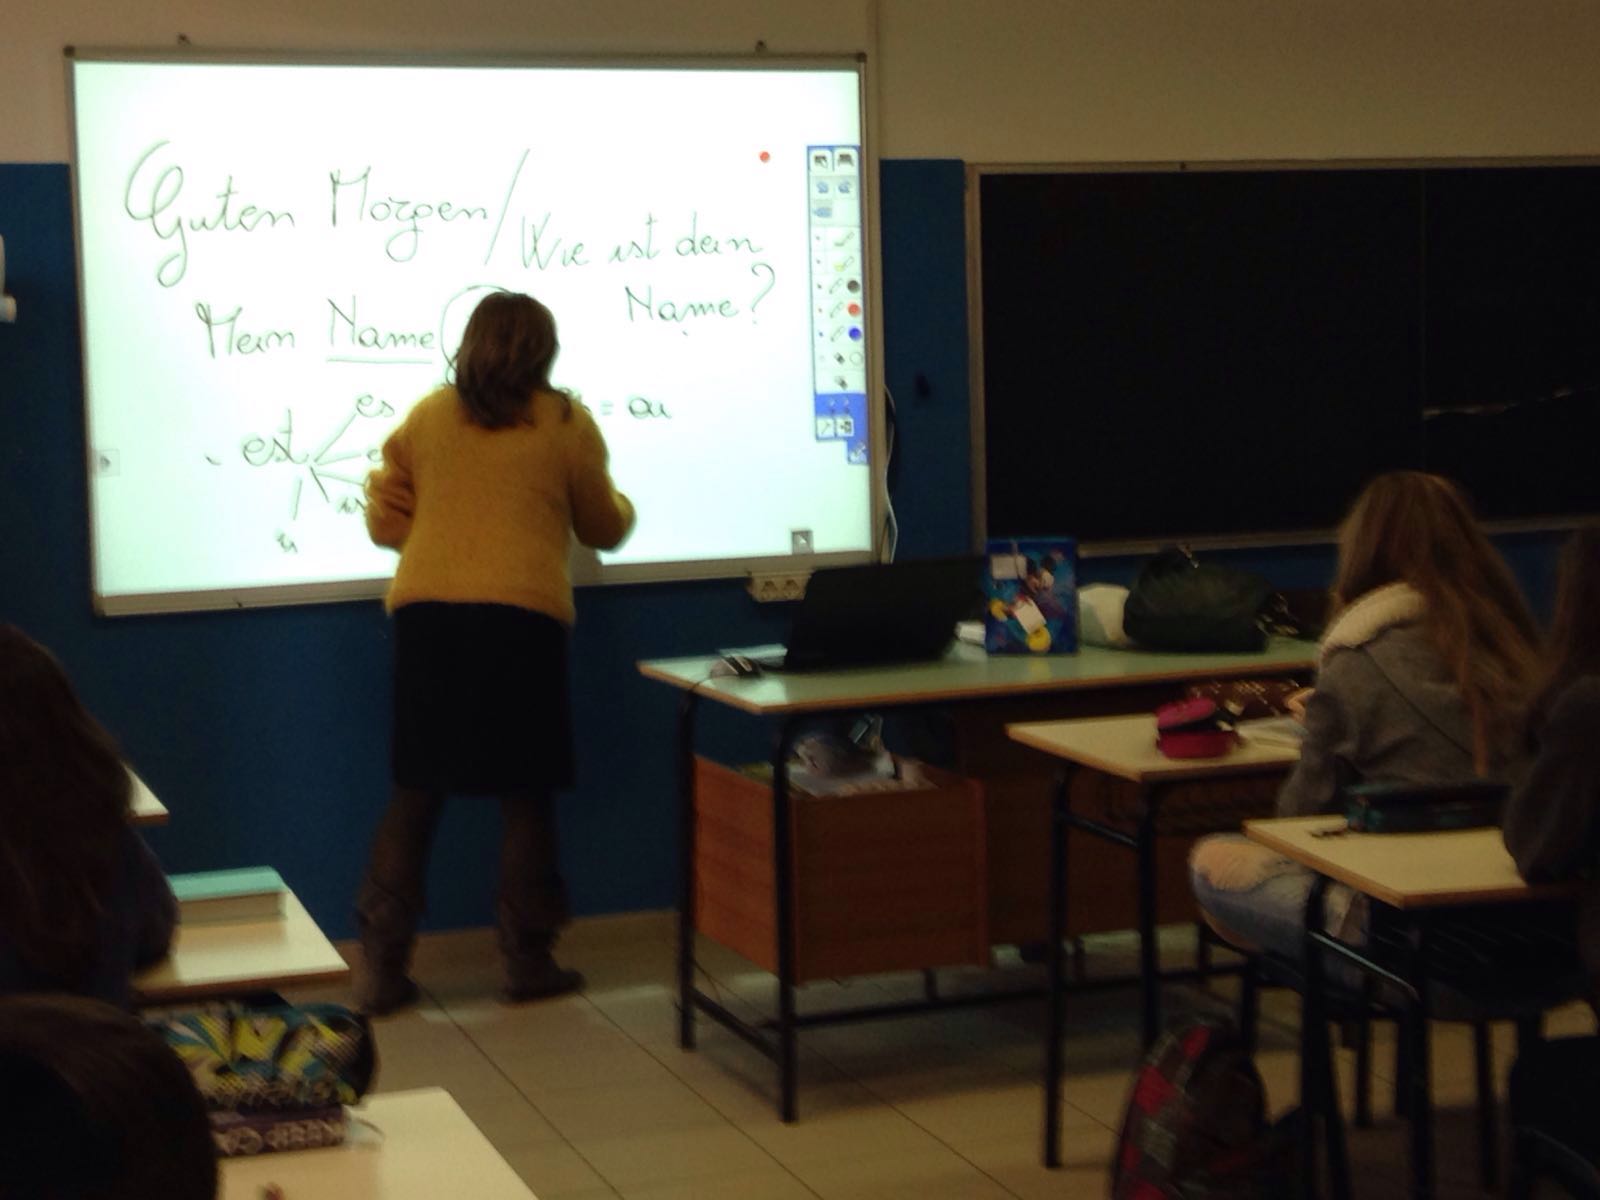 Guten Morgen/
Wie ist dein
Name?
Mein Name
est
es
= au